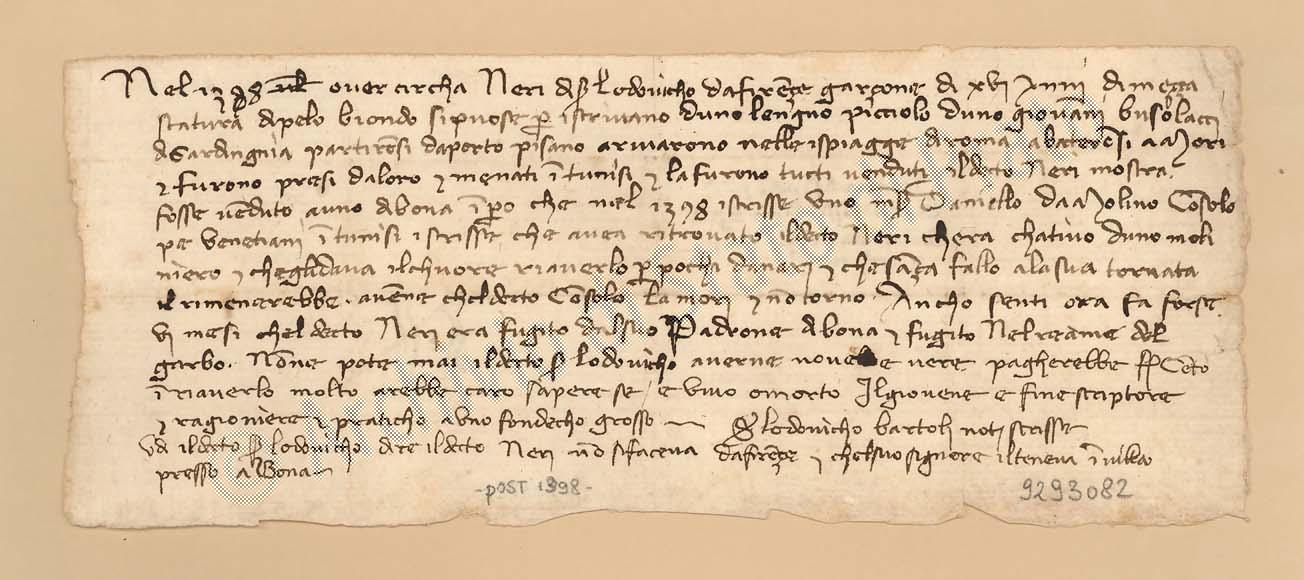 Nel 1398 over circha Neri di s(er) Lodovicho dafire(n)çe garçone di xvi Anni dimeçça
statura dipelo biondo sipuose p(er) iscrivano duno lengno picciolo duno giovanni busolacci
disardingnia partironsi daporto pisano arivarono nelle ispiagge diroma abaterosi aMori
(et) furono presi daloro (et) menati i(n) tunisi (et) lafurono tucti venduti ildecto Neri mostra
fosse ve(n)duto auno dibona i(m)p(er)o che nel 1398 iscrisse uno Daniello daMolino Co(n)solo
pe venetiani i(n) tunisi iscrisse che avea ritrovato ildecto Neri chera chativo duno moli
niero (et) cheglidava ilchuore riaverlo p(er) pochi danari (et) chesa(n)ça fallo alasua tornata
il rimenerebbe. ave(n)ne cheldecto Co(n)solo lamori (et) no(n) torno. Ancho senti ora fa forse
vi mesi cheldecto Neri era fugito dalsuo Padrone dibona (et) fugito Nelreame del
garbo. No(n)ne pote mai ildecto s(er) lodovicho averne novelle vere pagherebbe f. Cento
i(n) riaverlo molto arebbe caro sapere se e vivo omorto Ilgiovene e fine scriptore
(et) ragioniere (et) praticho auno fondecho grosso S(er) lodovicho bartoli not scrisse
ildecto s(er) lodovicho dire ildecto Neri no(n) sifaceva dafire(n)çe (et) chelsuo signore ilteneva i(n) villa
presso a Bona
-POST 1398-
9293082